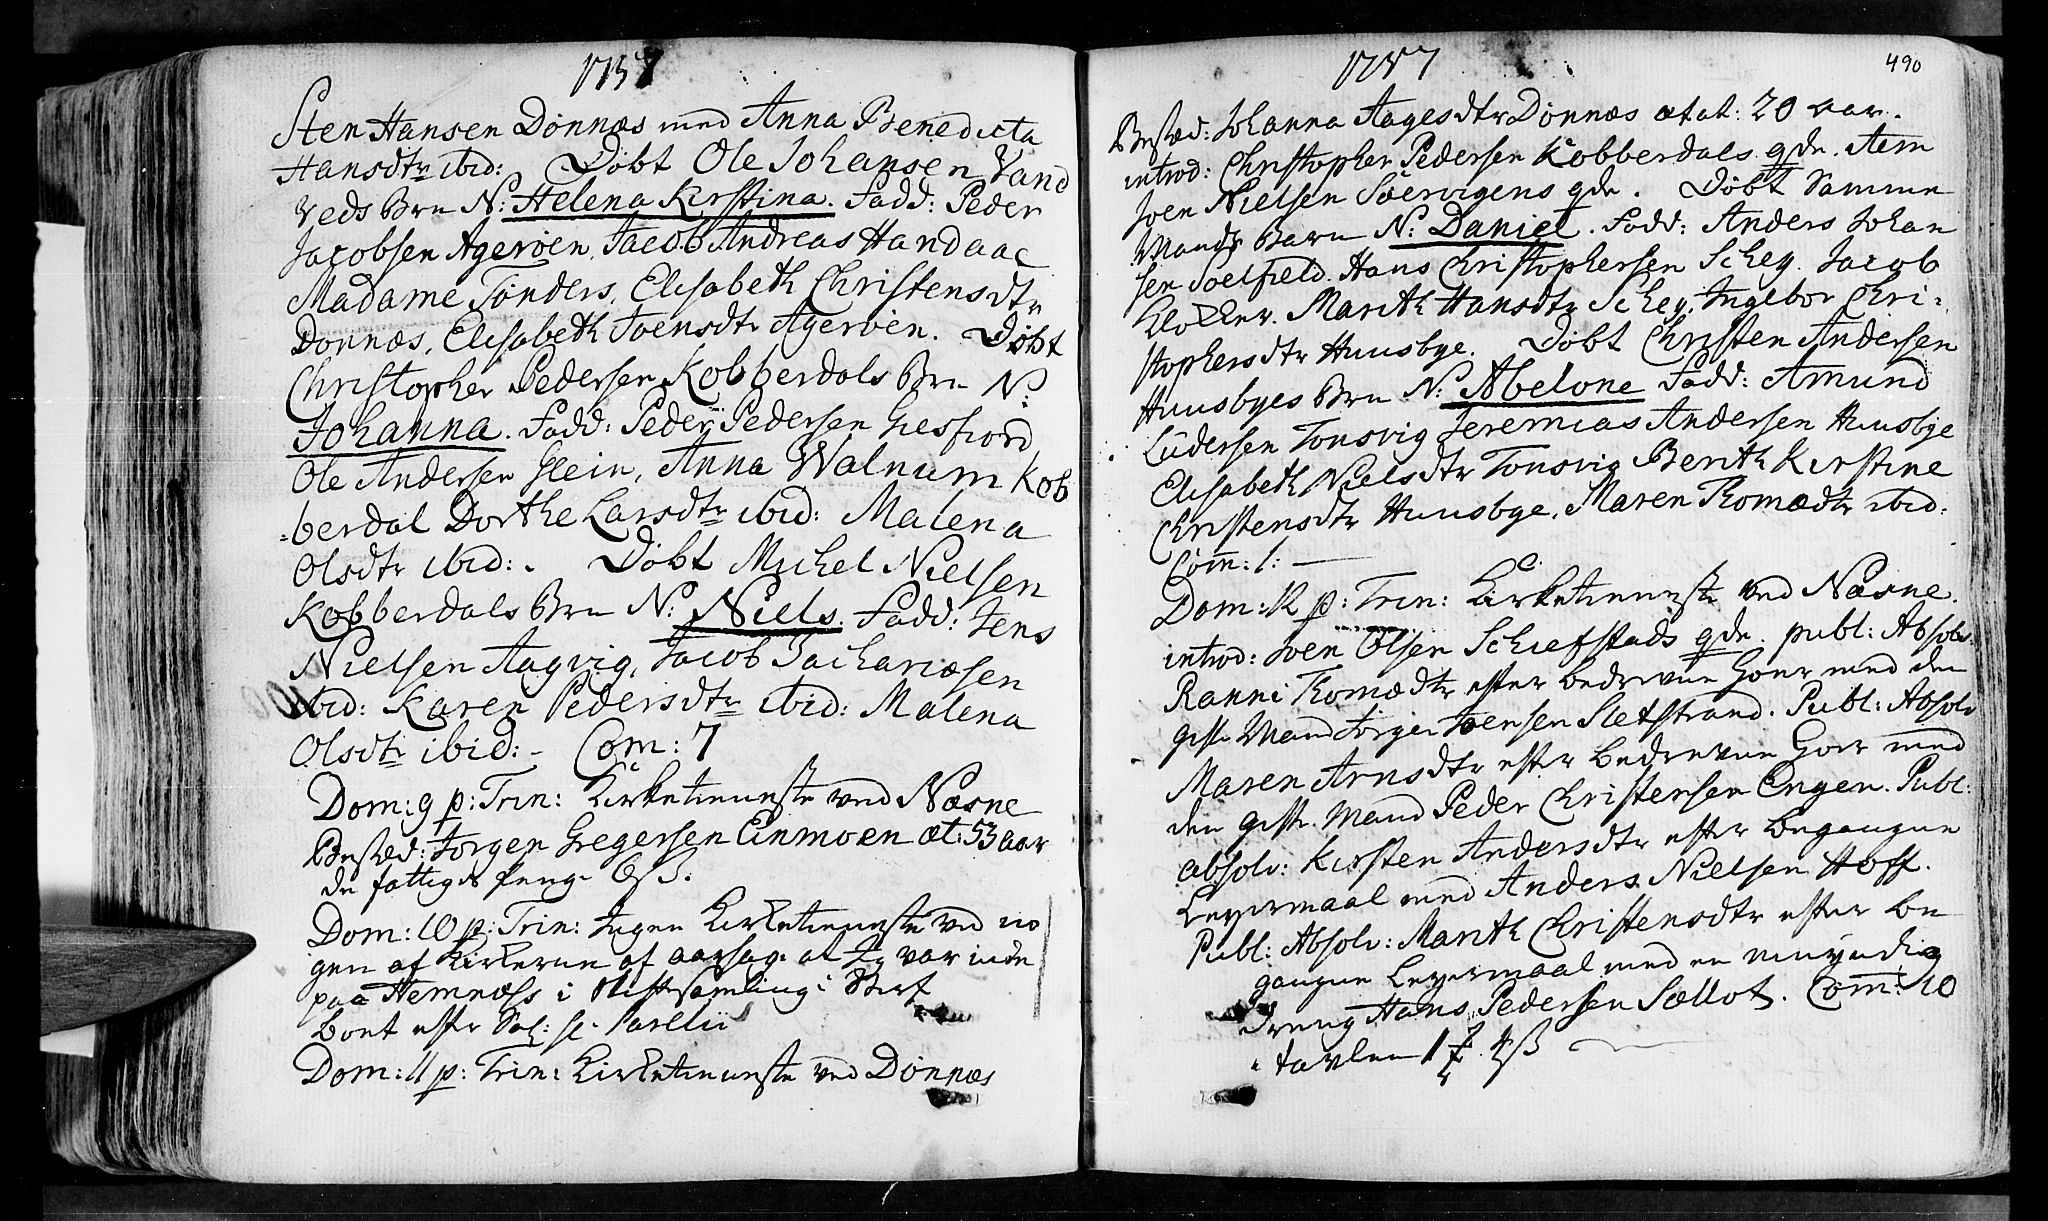 1757
Sten Hansen Dönnæs med Anna Benedicta
Hansdtr ibid: Döbt Ole Johansen Vand
veds Brn N: Helena Kirstina. Fadd: Peder
Jacobsen Ageröen, Jacob Andreas Handaae
Madame Tönders, Elisabeth Christensdtr
Dönnæs, Elisabeth Joensdtr Ageröen. Döbt
Christopher Pedersen Kobberdals Brn N:
Johanna. Fadd: Peder Pedersen Giesfiord
Ole Andersen Glein, Anna Walnum Kob
=berdal Dorthe Larsdtr ibid: Malena
Olsdtr ibid: . Döbt Michel Nielsen
Kobberdals Brn N: Niels. Fadd: Jens
Nielsen Aagvig, Jacob Zachariæsen
ibid: Karen Pedersdtr ibid: Malena
Olsdtr ibid: - Com: 7
Dom: 9 p: Trin: Kirketienneste ved Næsne
Bested: Jorgen Gregersen Einmoen æt: 53 aar
de fattiges penge 6 ß.
Dom: 10 p: Trin: Ingen Kirketienneste ved no
gen af Kirkerne af aarsag at Jeg var inde
paa Hemnæss i Skiftesamling i Sterf
boet efter Sal: Hr.
Dom: 11 p: Trin: Kirketienneste ved Dönnæs
1757
490
Bested: Johanna Aagesdtr Dönnæs ætat: 20 aar.
introd: Christopher Pedersen Kobberdals qde. item
Joen Nielsen Söervigens qde. Döbt samme
Mands Barn N: Daniel. Fadd: Anders Johan
sen Soelfield. Hans Christophersen Schey. Jacob
Klokker. Marith Hansdtr Schey, Ingebor Chri=
stophersdtr Huusbye. Döbt Christen Andersen
Huusbyes Brn N: Abelone Fadd: Amund
Lüdersen Tonsvig Jeremias Andersen Huusbye
Elisabeth Nielsdtr Tonsvig Berith Kirstine
Christensdtr Huusbye, Maren Thomædtr ibid:
Com: 1: —
Dom: 12 p: Trin: Kirketienneste ved Næsne.
introd: Joen Olsen Schiefstads qde. publ: Absolv:
Ranni Thomædtr efter bedreven Hoer med den
gifte Mand Jörgen Joensen Sletstrand. Publ: Absolv
Maren Arnsdtr efter bedreven Hoer med
den gifte Mand Peder Christensen Engen. Publ:
absolv: Kirsten Andersdtr efter begangne
Leyermaal med Anders Nielsen Hoff.
Publ: Absolv: Marith Christensdtr efter be
gangne Leyermaal med en umyndig
dreng Hans Pedersen Sællot. Com: 10
i tavlen 1 ß